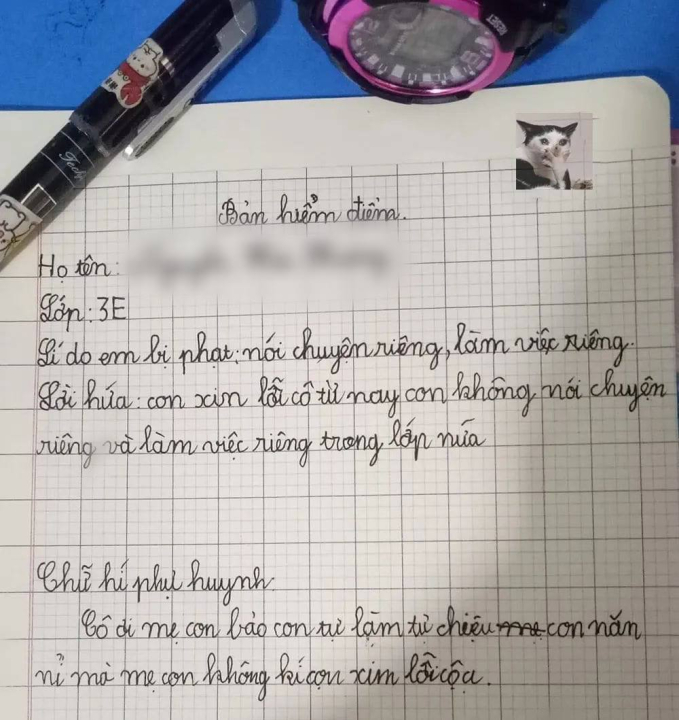 RESET
Bản hiểm điểm.
Họ tên:
Lớp: 3E
Lí do em bị phạt: nói chuyện riêng, làm việc riêng.
Lời húa: con xin lỗi cô từ nay con không nói chuyện
riêng và làm việc riêng trong lớp núa
Chữ hí phụ huynh
Cô di mẹ con bảo con tự làm tự chiệu mẹ con năn
nỉ mà mẹ con không kí cọn xim lỗi cộa.